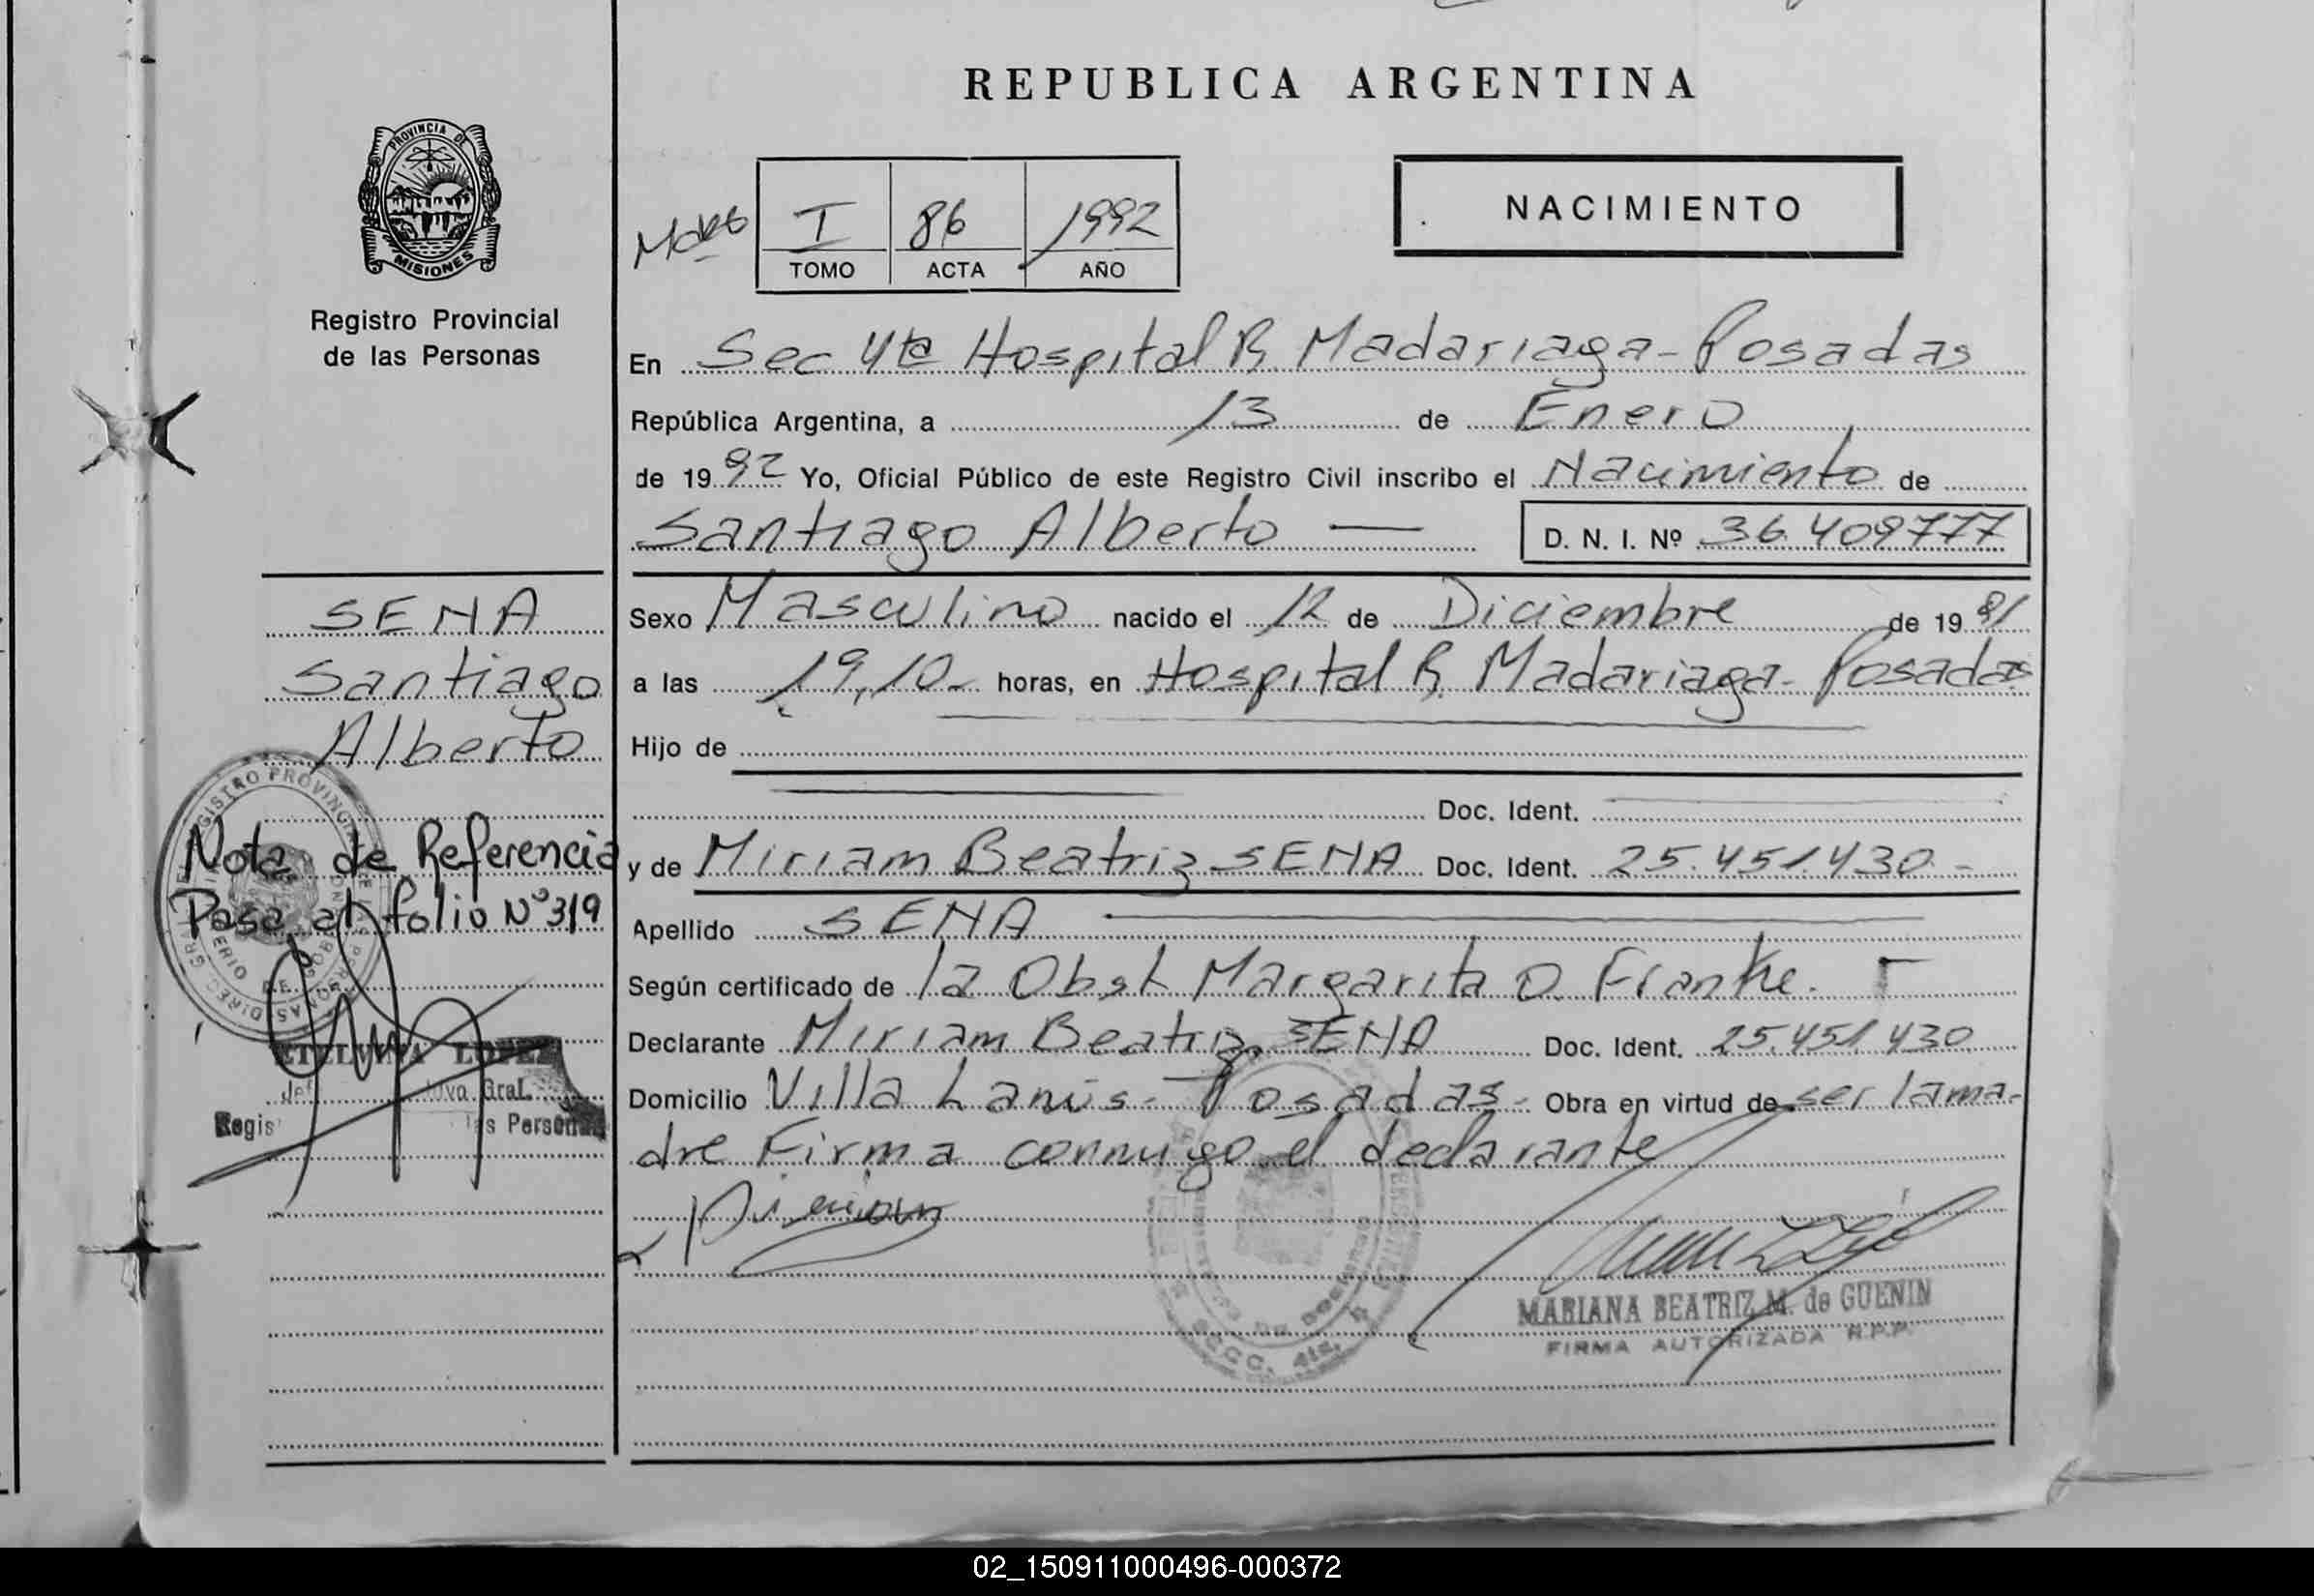 REPUBLICA ARGENTINA
PROVINCIA DE
MISIONES
Registro Provincial
de las Personas
I 86 1992
TOMO ACTA AÑO
NACIMIENTO
En Sec 4ta Hospital R. Madariaga - Posadas
República Argentina, a 13 de Enero
de 1992 Yo, Oficial Público de este Registro Civil inscribo el Nacimiento de
Santiago Alberto — D. N. I. Nº 36.409777
SENA
Santiago
Alberto
Nota de Referencia
Pasa al folio N° 319
ETELVINA LOPEZ
Gral.
Regis las Personas
Sexo Masculino nacido el 12 de Diciembre de 1991
a las 19,10 - horas, en Hospital R. Madariaga - Posadas
Hijo de
Doc. Ident.
y de Miriam Beatriz SENA Doc. Ident. 25.451.430 -
Apellido SENA
Según certificado de la Obst Margarita O. Franke.
Declarante Miriam Beatriz SENA Doc. Ident. 25.451.430
Domicilio Villa Lanús - Posadas - Obra en virtud de ser la ma-
dre Firma conmigo el declarante
MARIANA BEATRIZ M. de GUENIN
FIRMA AUTORIZADA R.P.P.
SECC. 4ta.
02_150911000496-000372